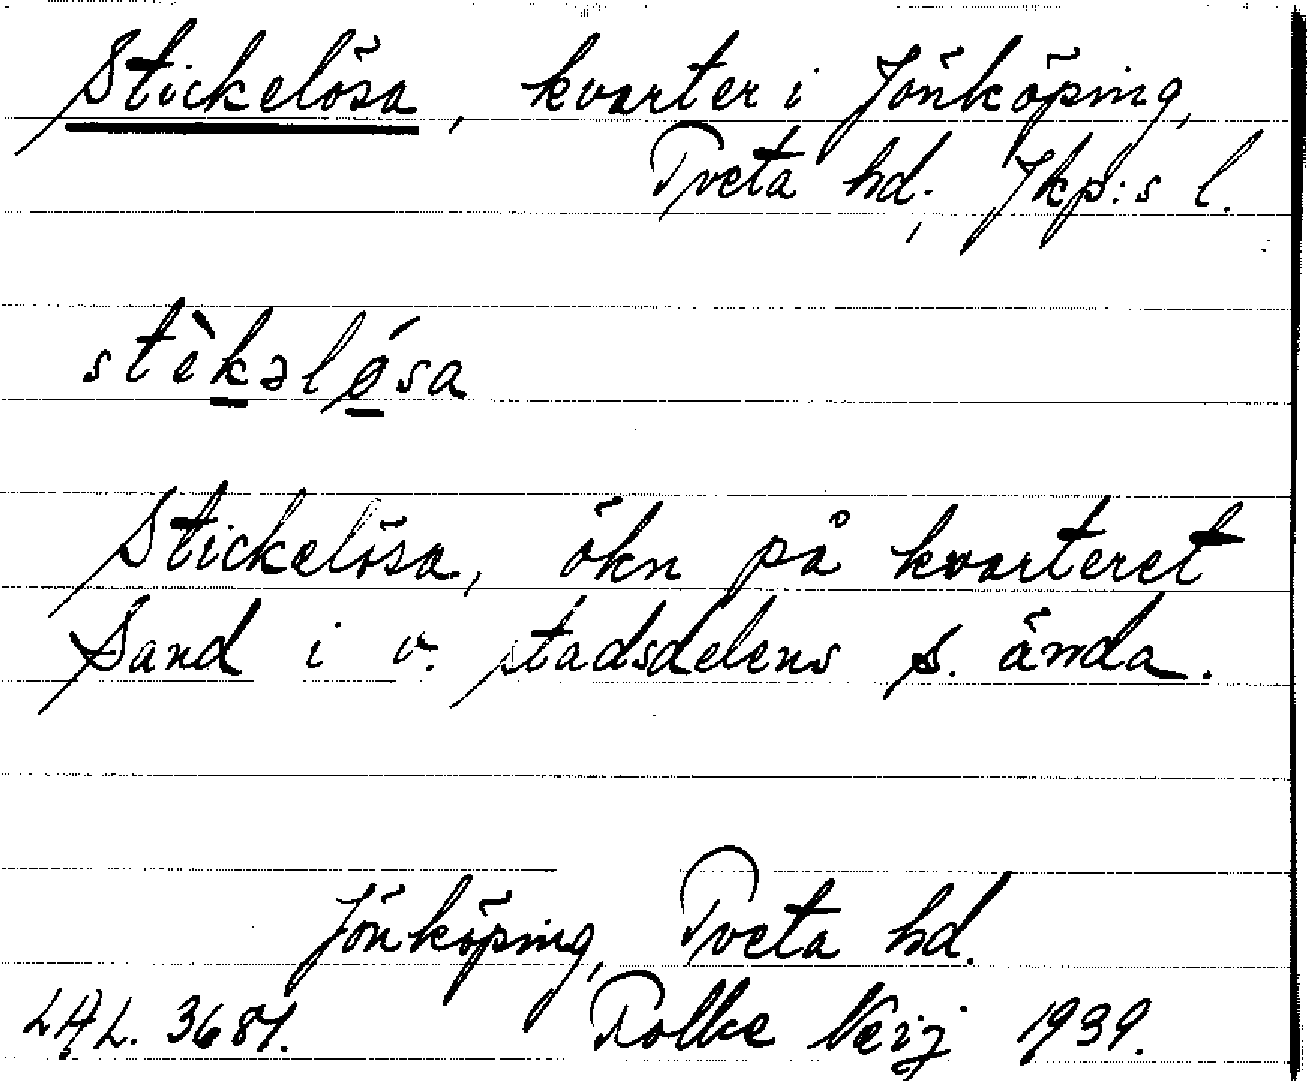 Stickelösa, kvarter i Jönköping,
Tveta hd, Jkp:s l.
stèkəlǿsa
Stickelösa, ökn på kvarteret
Sand i v. stadsdelens s. ända.
Jönköping, Tveta hd.
LAL. 3681. Folke Neij 1939.